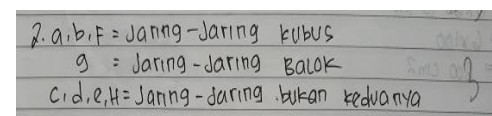 2. a, b, F = Jaring-Jaring kubus
g = Jaring-Jaring BALOK
C, d, e, H = Jaring-Jaring bukan keduanya
3